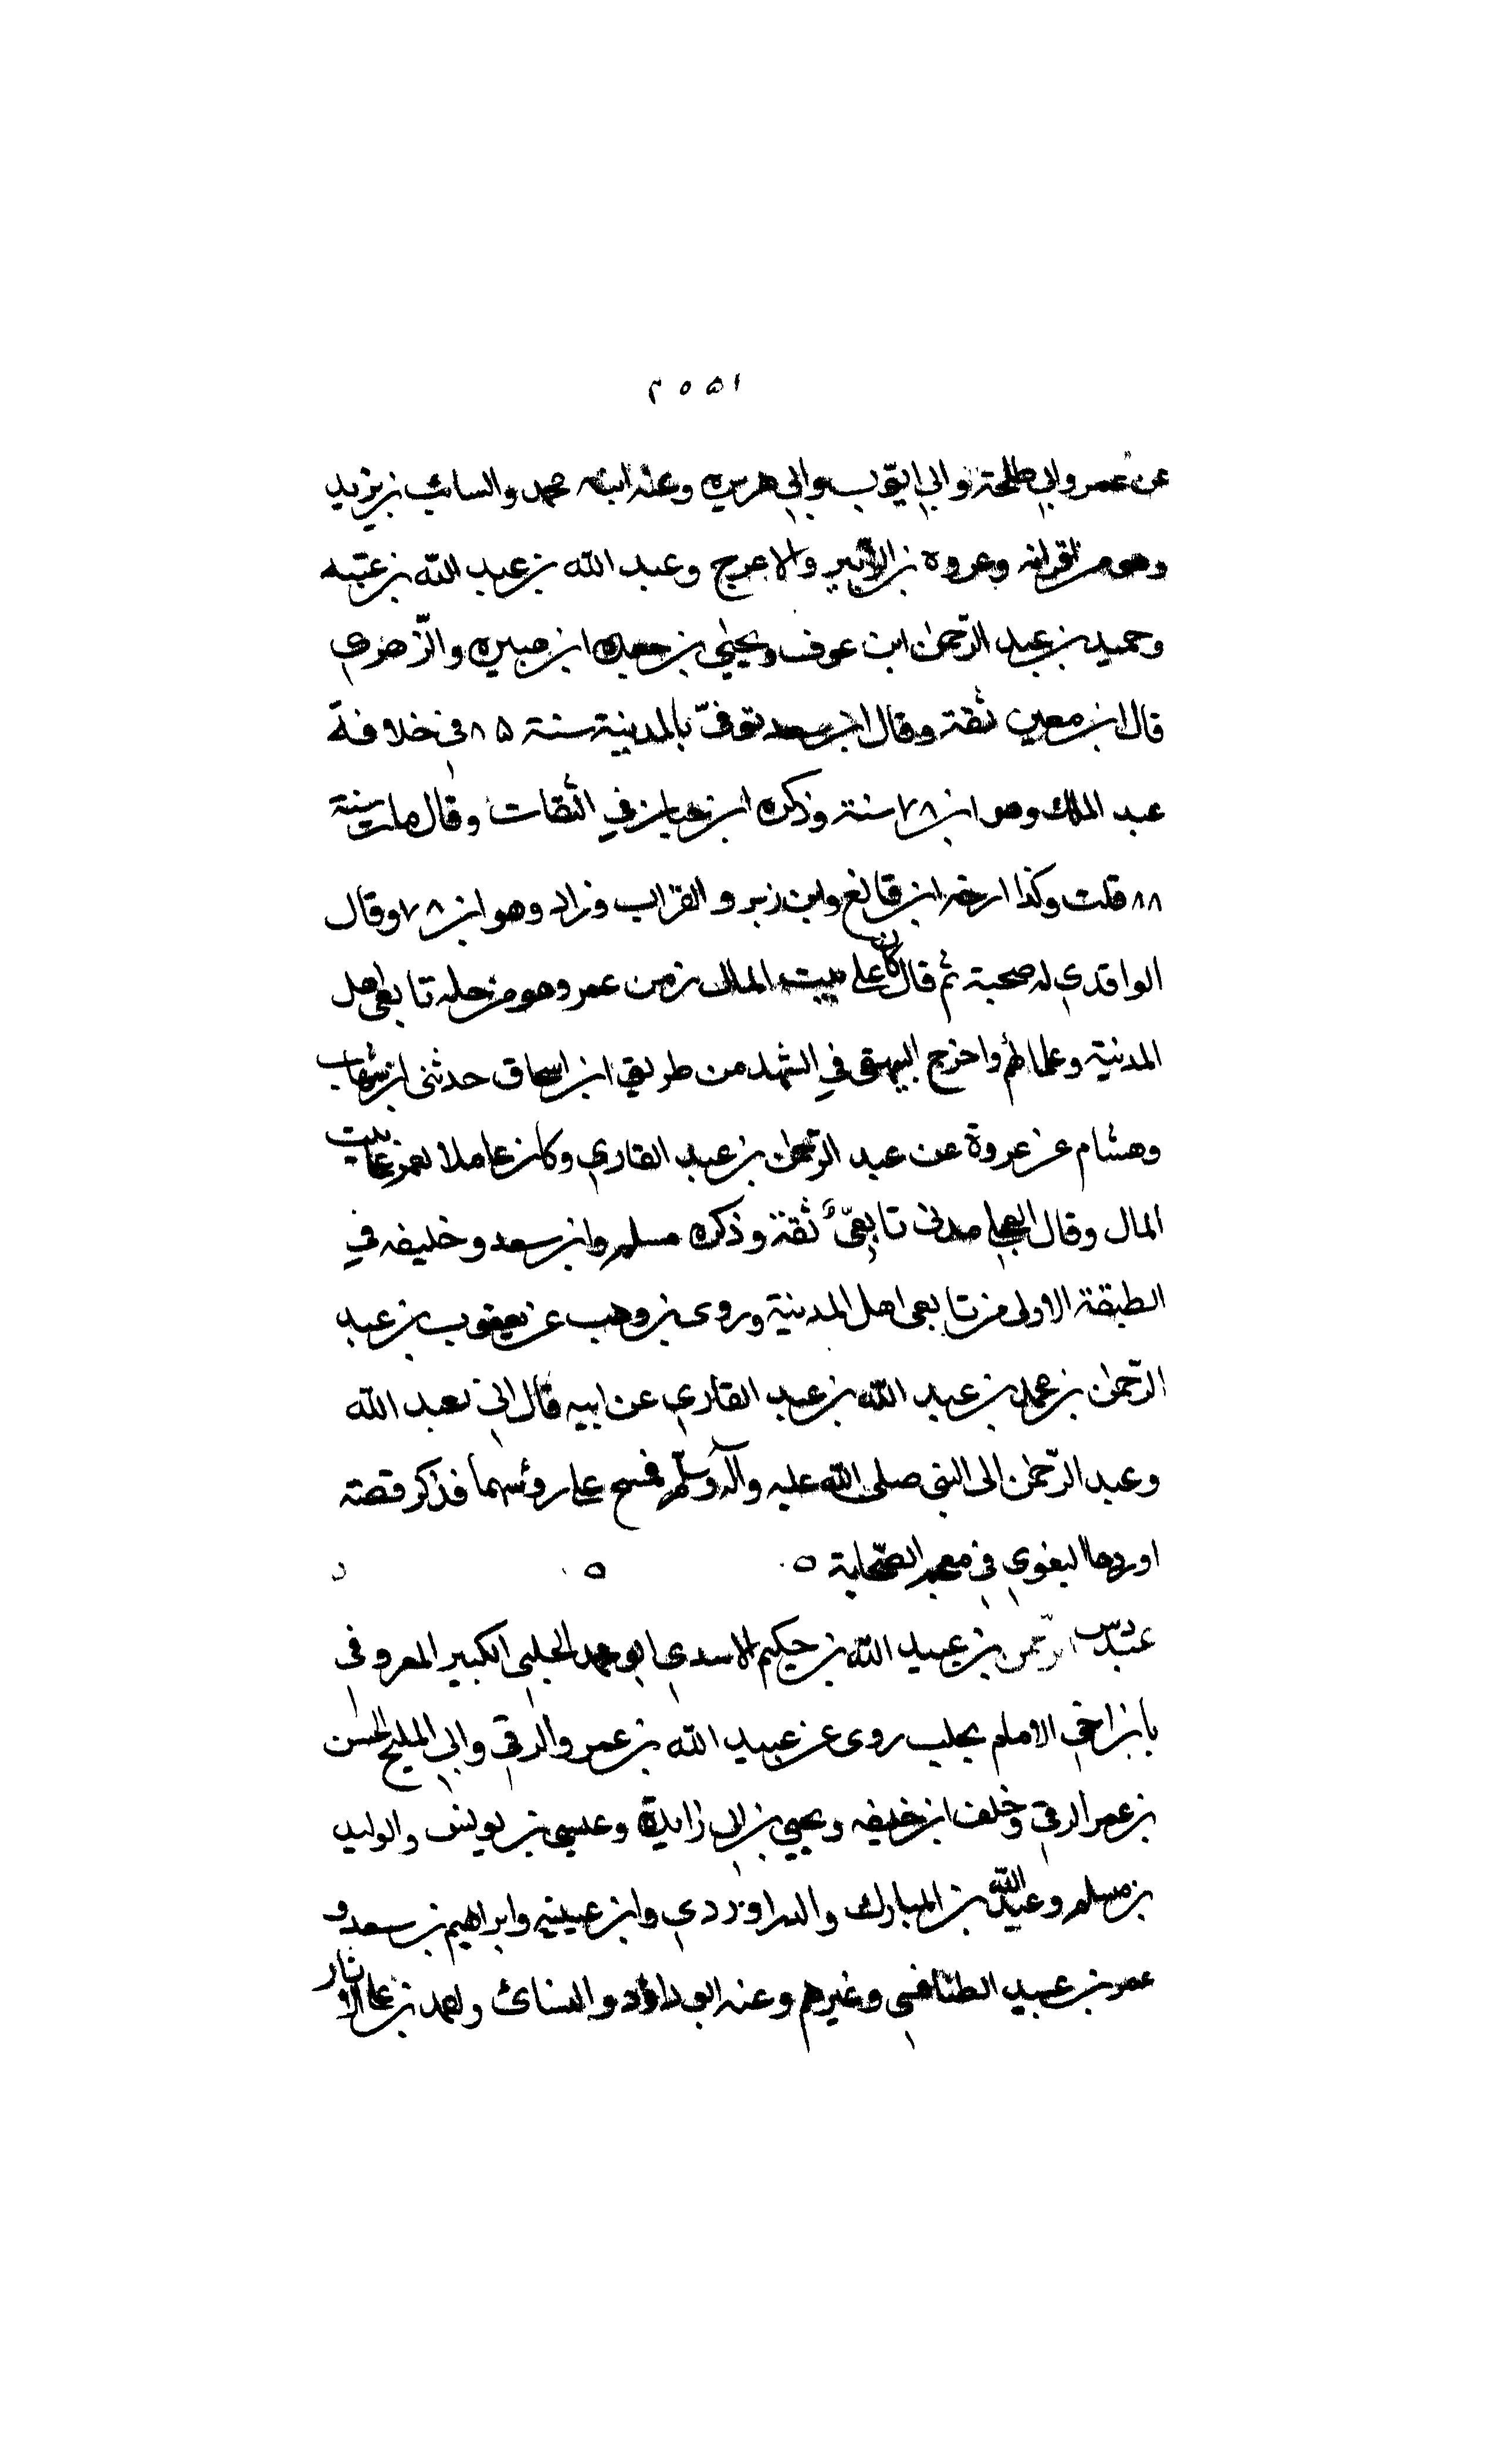 ٢٠٥١
عن عمر وابي طلحة وابي ايوب وابي هريره وعنه ابنه محمد والسائب بن يزيد
وهو من اقرانه وعروه بن الزبير والاعرج وعبد الله بن عبد الله بن عتبه
وحميد بن عبد الرحمن ابن عوف ويحيى بن جعده ابن هبيره والزهري
قال ابن معين ثقة وقال ابن سعد توفي بالمدينة سنة ٨٥ في خلافة
عبد الملك وهو ابن ٧٨ سنة وذكره ابن حبان في الثقات وقال مات سنة
٨٨ قلت وكذا ارخه ابن قانع وابن زبر والقراب وزاد وهو ابن ٧٨ وقال
الواقدي له صحبة ثم قال كان على بيت المال زمن عمر وهو من جلة تابعي اهل
المدينة وعلمائهم واخرج البيهقي في التشهد من طريق ابن اسحاق حدثني ابن شهاب
وهشام عن عروة عن عبد الرحمن بن عبد القاري وكان عاملا لعمر على بيت
المال وقال العجلي مدني تابعيّ ثقة وذكره مسلم وابن سعد وخليفه في
الطبقة الاولى من تابعي اهل المدينة وروى بن وهب عن يعقوب بن عبد
الرحمن بن محمد بن عبد الله بن عبد القاري عن ابيه قال اتي بعبد الله
وعبد الرحمن الى النبي صلى الله عليه وآله وسلم فمسح على رؤسهما فذكر قصته
اوردها البغوي في معجم الصحابة ٥ ٥
عبد الرحمن بن عبيد الله بن حكيم الاسدي ابو محمد الحلبي الكبير المعروف
بابن اخي الامام بحلب روى عن عبيد الله بن عمر والرقي وابي المليح الحسن
بن عمر الرقي وخلف ابن خليفه ويحيى بن ابي زايدة وعيسى بن يونس والوليد
بن مسلم وعبد الله بن المبارك والدراوردي وابن عيينه وابراهيم بن سعد و
عمر بن عبيد الطنافسي وغيرهم وعنه ابو داؤد والنسائ واحمد بن على الابار